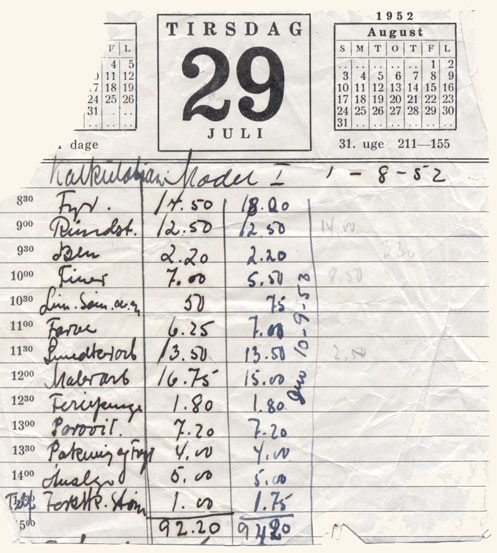 TIRSDAG
29
JULI
1952
August
F L
4 5
11 12
17 18 19
24 25 26
31
dage
S M T O T F L
1 2
3 4 5 6 7 8 9
10 11 12 13 14 15 16
17 18 19 20 21 22 23
24 25 26 27 28 29 30
31
31. uge 211—155
Kalkulation Model I 1 - 8 - 52
8³⁰ Fyr. 14.50 18.00
9⁰⁰ Rundst. 12.50 12.50 14.00
9³⁰ Ben 2.20 2.20
10⁰⁰ Finer 7.00 5.50 8.50
10³⁰ Lim. Søm. 50 75
11⁰⁰ Farve 6.25 7.00
11³⁰ Snedkerarb 13.50 13.50
12⁰⁰ Malerarb 16.75 15.00
12³⁰ Feriepenge 1.80 1.80
13⁰⁰ 7.20 7.20
13³⁰ Pakning og 4.00 4.00
14⁰⁰ 5.00 5.00
1.00 1.75
5⁰⁰ 92.20 94.20
10-9-53